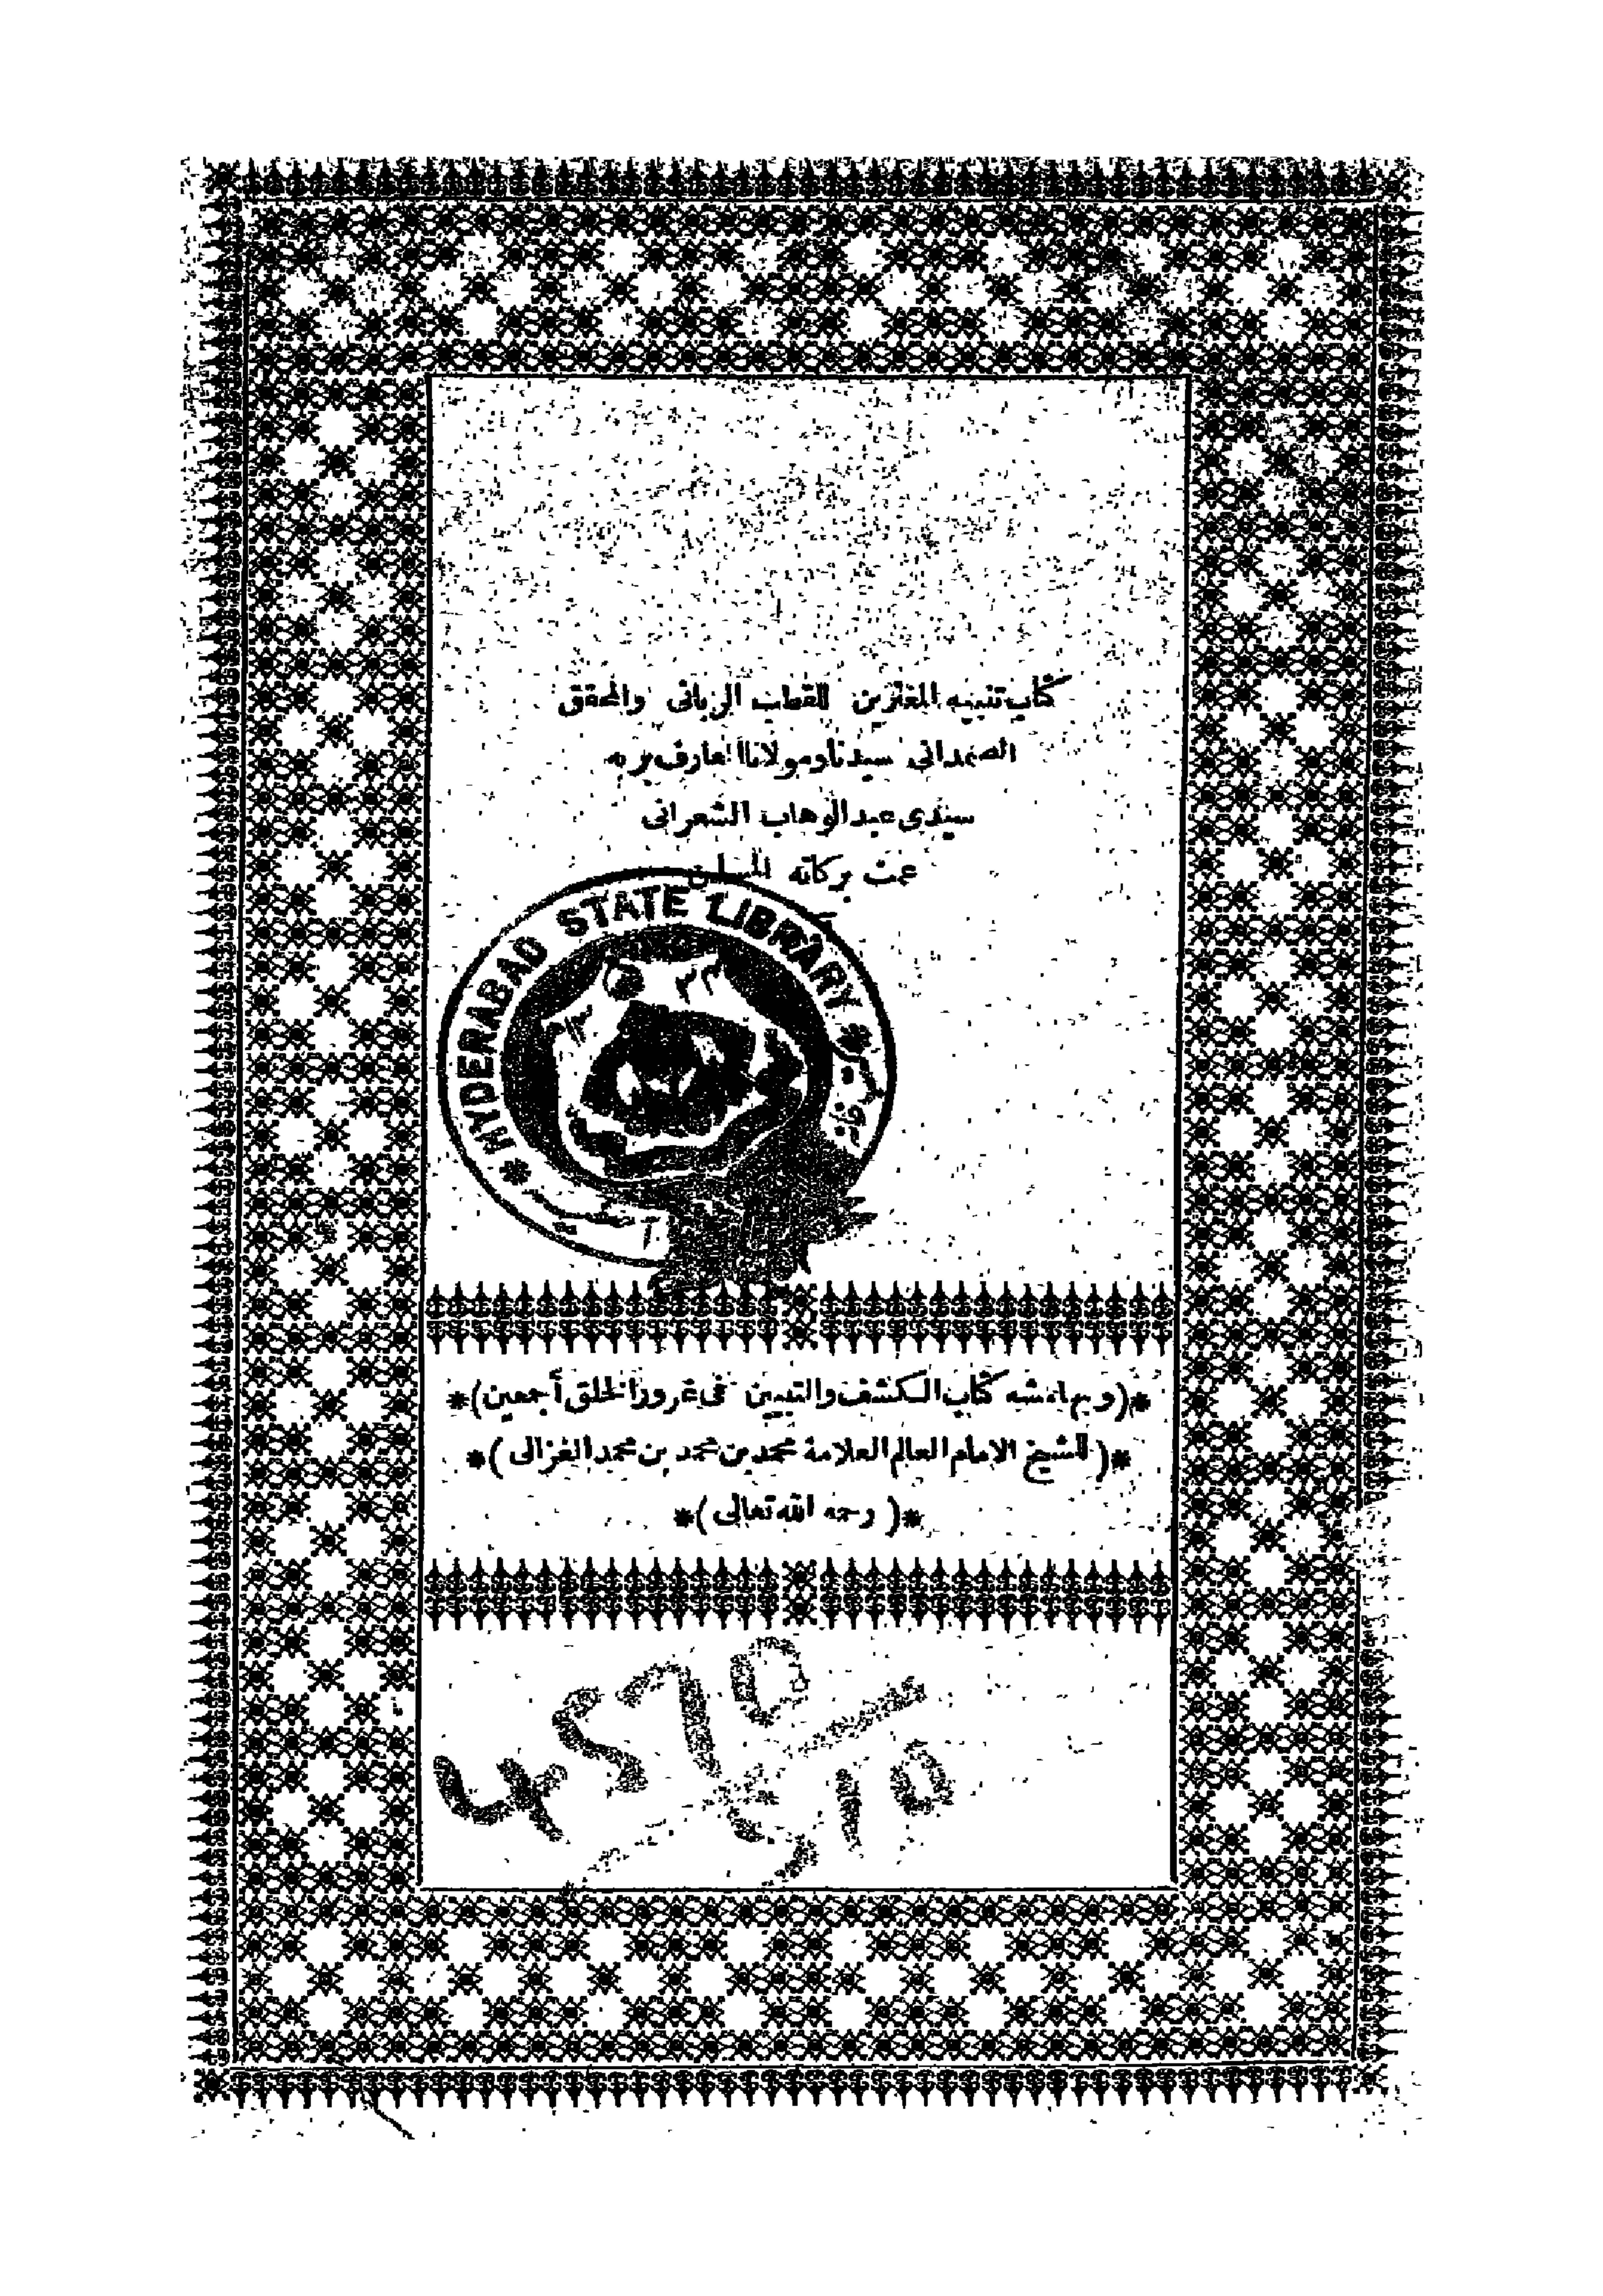 كتاب تنبيه المغترين للقطب الرباني والمحقق
الصمداني سيدنا ومولانا العارف بربه
سيدي عبد الوهاب الشعراني
عمت بركاته المسلمين
HYDERABAD STATE LIBRARY
*(وبهامشه كتاب الكشف والتبيين في غرور الخلق أجمعين)*
*(للشيخ الامام العالم العلامة محمد بن محمد بن محمد الغزالي)*
*(رحمه الله تعالى)*